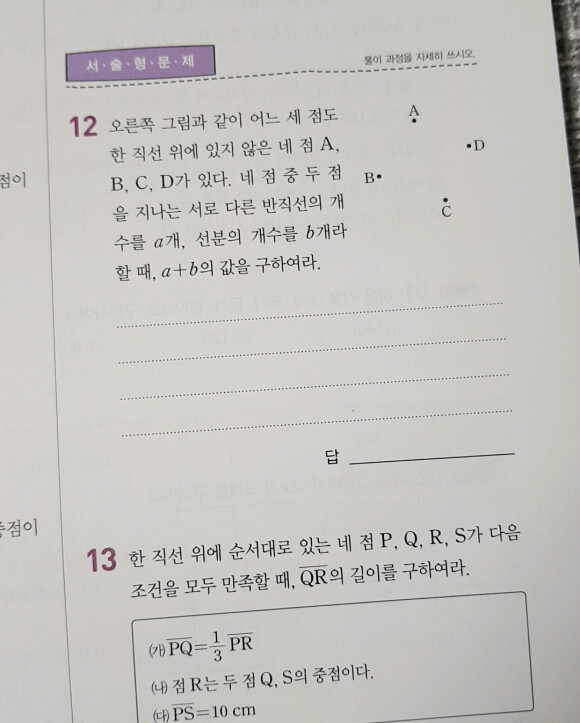 서·술·형·문·제
풀이 과정을 자세히 쓰시오.
12 오른쪽 그림과 같이 어느 세 점도
한 직선 위에 있지 않은 네 점 A,
B, C, D가 있다. 네 점 중 두 점
을 지나는 서로 다른 반직선의 개
수를 a개, 선분의 개수를 b개라
할 때, a+b의 값을 구하여라.
A
•D
B•
C
답
점이
중점이
13 한 직선 위에 순서대로 있는 네 점 P, Q, R, S가 다음
조건을 모두 만족할 때, Q̅R̅의 길이를 구하여라.
㈎ P̅Q̅=1/3 P̅R̅
㈏ 점 R는 두 점 Q, S의 중점이다.
㈐ P̅S̅=10 cm